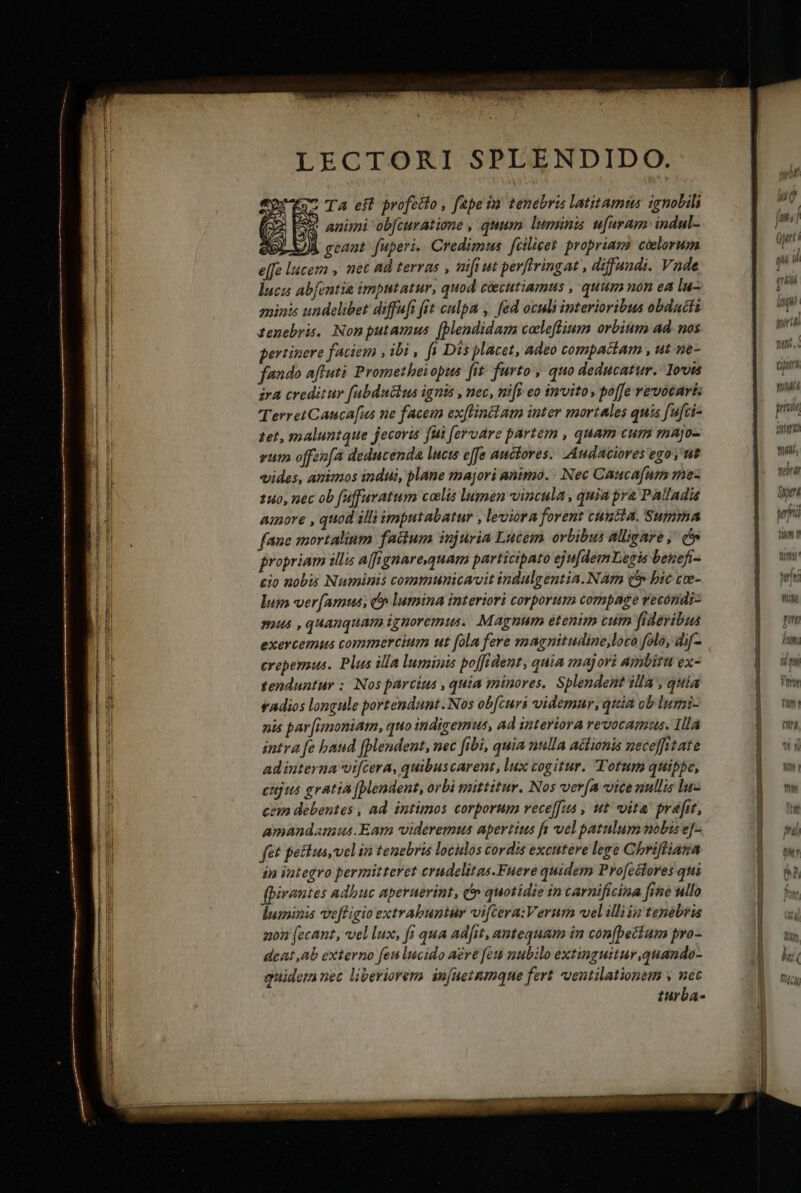 LECTORI SPLENDIDO.
ITa eſt profecto, ſæpe in tenebris latitamus ignobili
animi obſcuratione, quum luminis uſuram indul-
geant ſuperi. Credimus ſcilicet propriam cœlorum
eſſe lucem, nec ad terras, niſi ut perſtringat, diffundi. Vnde
lucis abſentia imputatur, quod cœcutiamus, quum non ea lu-
minis undelibet diffuſi ſit culpa, ſed oculi interioribus obducti
tenebris. Non putamus ſplendidam cœleſtium orbium ad nos
pertinere faciem, ibi, ſi Dis placet, adeo compactam, ut ne-
fando aſtuti Promethei opus ſit furto, quo deducatur. Iovis
ira creditur ſubductus ignis, nec, niſi eo invito, poſſe revocari.
Terret Caucaſus ne facem exſtinctam inter mortales quis ſuſci-
tet, maluntque jecoris ſui ſervare partem, quam cum majo-
rum offenſa deducenda lucis eſſe auctores. Audaciores ego, ut
vides, animos indui, plane majori animo. Nec Caucaſum me-
tuo, nec ob ſuffuratum cœlis lumen vincula, quia præ Palladis
amore, quod illi imputabatur, leviora forent cuncta. Summa
ſane mortalium factum injuria Lucem orbibus alligare, &
propriam illis aſſignare, quam participato ejuſdem Legis benefi-
cio nobis Numinis communicavit indulgentia. Nam & hic cœ-
lum verſamus, & lumina interiori corporum compage recondi-
mus, quanquam ignoremus. Magnum etenim cum ſideribus
exercemus commercium ut ſola fere magnitudine, loco ſolo, diſ-
crepemus. Plus illa luminis poſſident, quia majori ambitu ex-
tenduntur: Nos parcius, quia minores. Splendent illa, quia
radios longule portendunt. Nos obſcuri videmur, quia ob lumi-
nis parſimoniam, quo indigemus, ad interiora revocamus. Illa
intra ſe haud ſplendent, nec ſibi, quia nulla actionis neceſſitate
ad interna viſcera, quibus carent, lux cogitur. Totum quippe,
cujus gratia ſplendent, orbi mittitur. Nos verſa vice nullis lu-
cem debentes, ad intimos corporum receſſus, ut vita præſit,
amandamus. Eam videremus apertius ſi vel patulum nobis eſ-
ſet pectus, vel in tenebris loculos cordis excutere lege Chriſtiana
in integro permitteret crudelitas. Fuere quidem Profectores qui
ſpirantes adhuc aperuerint, & quotidie in carnificina ſine ullo
luminis veſtigio extrahuntur viſcera: Verum vel illi in tenebris
non ſecant, vel lux, ſi qua adſit, antequam in conſpectum pro-
deat, ab externo ſeu lucido aëre ſeu nubilo extinguitur, quando-
quidem nec liberiorem inſuetamque fert ventilationem, nec
turba-